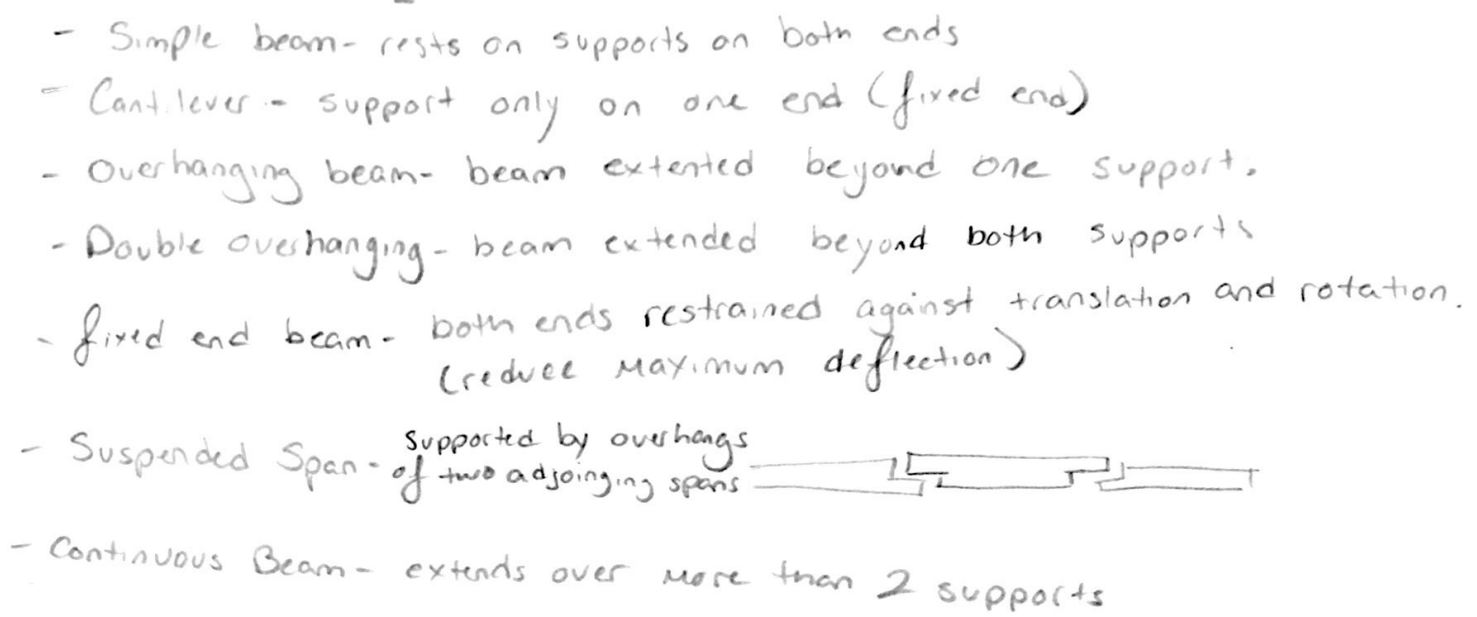 - Simple beam- rests on supports on both ends
- Cantilever - support only on one end (fixed end)
- Overhanging beam- beam extented beyond one support.
- Double overhanging- beam extended beyond both supports
- fixed end beam- both ends restrained against translation and rotation.
(reduce maximum deflection)
- Suspended Span- supported by overhangs
of two adjoinging spans
- Continuous Beam- extends over more than 2 supports